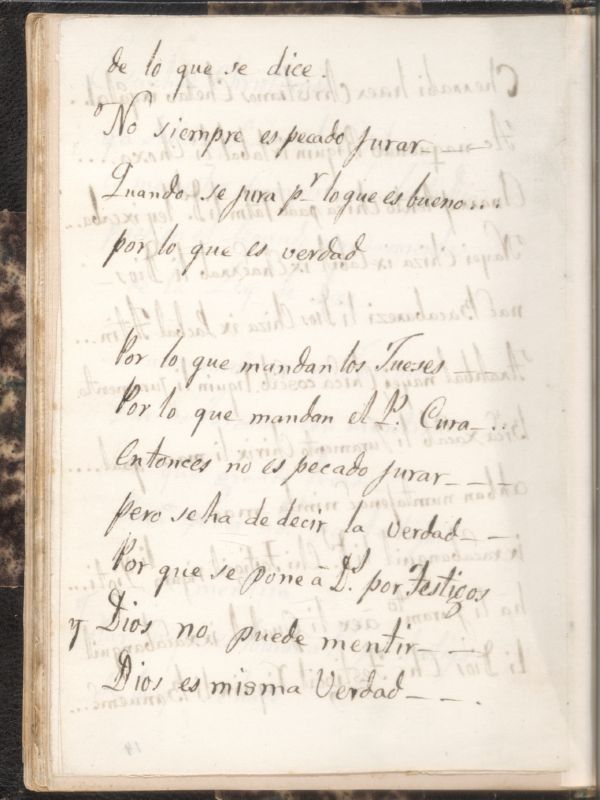 de lo que se dice.
No siempre es pecado jurar - -
Quando se jura pr lo que es bueno...
por lo que es verdad
Por lo que mandan los Jueses
Por lo que mandan el P. Cura - ..
Entonces no es pecado jurar - - -
pero se ha de decir la verdad - -
Por que se pone â Ds. por Testigos
y Dios no puede mentir - -
Dios es misma Verdad - - .